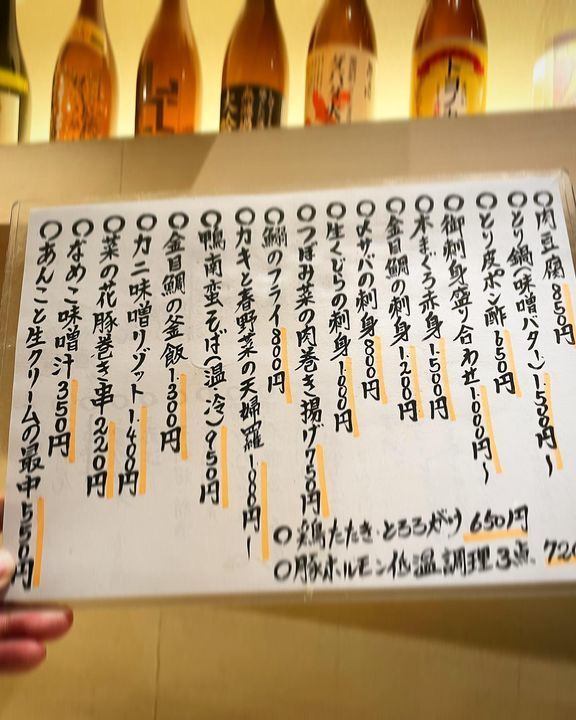 ○肉豆腐 850円
○とり鍋(味噌バター)1.500円〜
○とり皮ポン酢 650円
○御刺身盛り合わせ 1.000円〜
○本まぐろ赤身 1.500円
○金目鯛の刺身 1.200円
○〆サバの刺身 800円
○生くじらの刺身 1.000円
○つぼみ菜の肉巻き揚げ 750円
○鰯のフライ 800円
○カキと春野菜の天婦羅 1.100円〜
○鴨南蛮そば(温・冷)950円
○金目鯛の釜飯 1.300円
○カニ味噌リゾット 1.400円
○菜の花豚巻き串 220円
○なめこ味噌汁 350円
○あんこと生クリームの最中 550円
○鶏たたき・とろろがけ 650円
○豚ホルモン低温調理3点 720